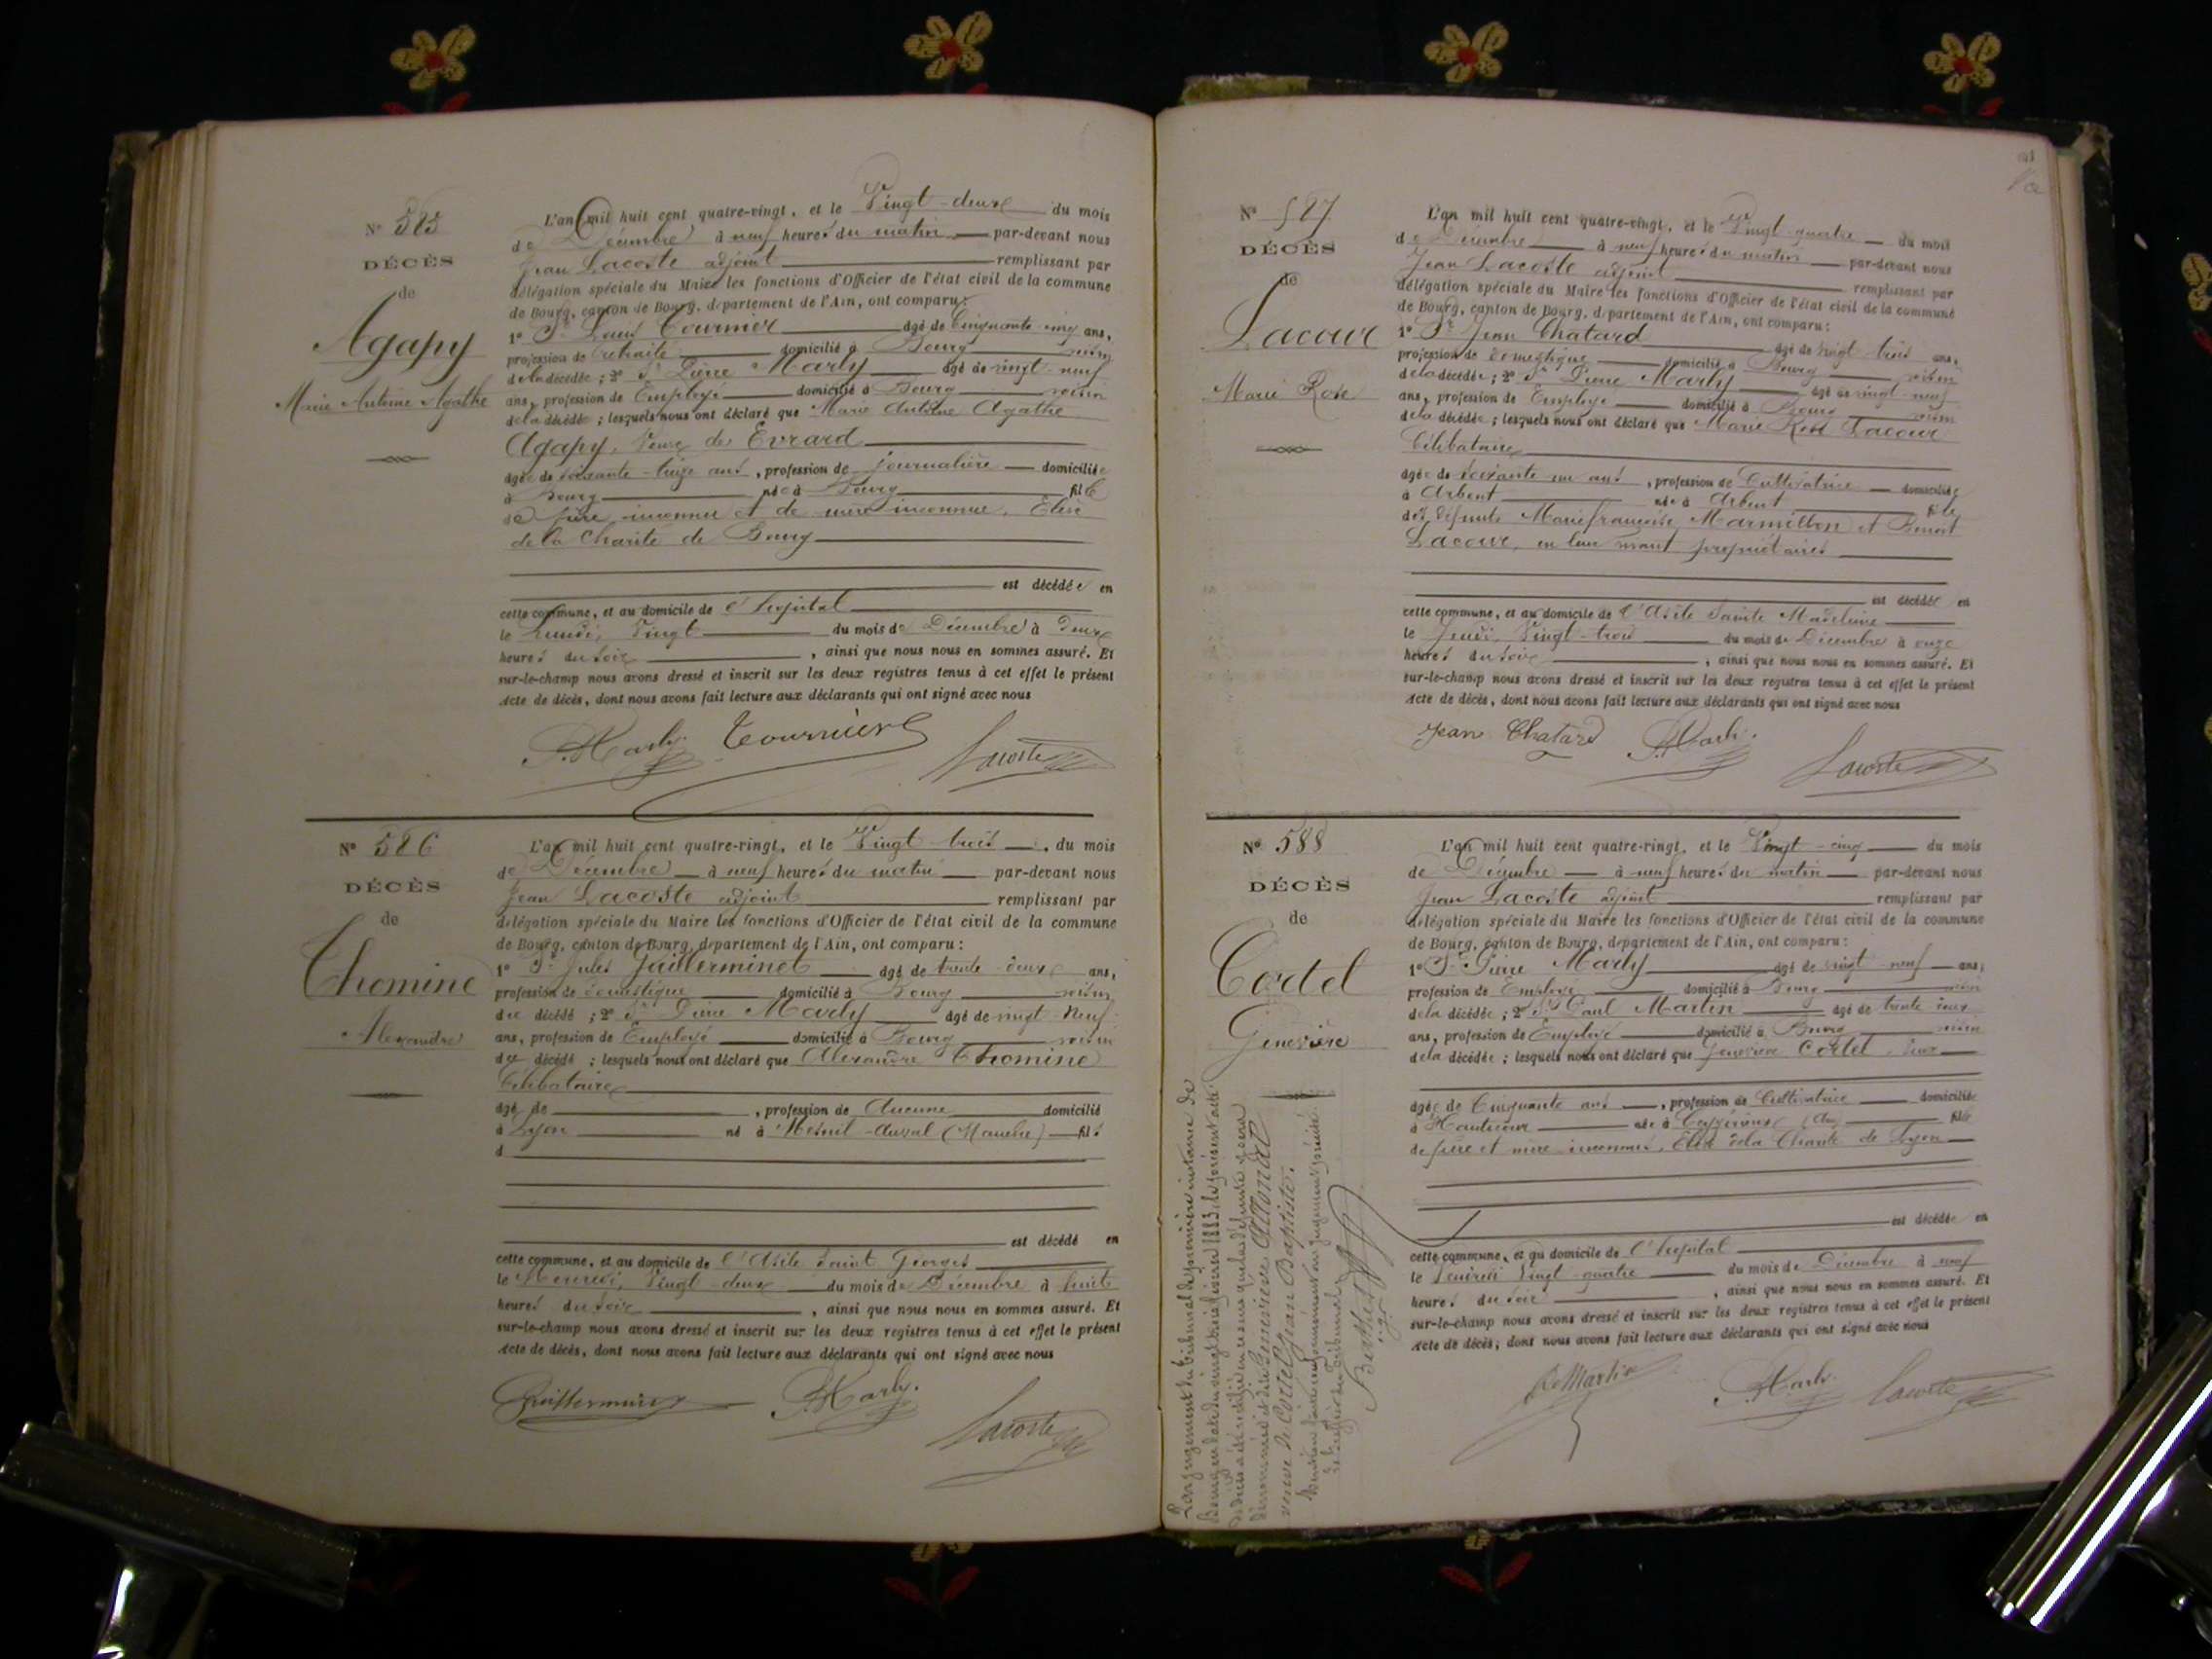 N° 585
DÉCÈS
de
Agapy
Marie Antoine Agathe
L'an mil huit cent quatre-vingt, et le Vingt-deux du mois
de Décembre à neuf heures du matin par-devant nous
Jean Lacoste adjoint remplissant par
délégation spéciale du Maire les fonctions d'Officier de l'état civil de la commune
de Bourg, canton de Bourg, département de l'Ain, ont comparu :
1° Sr Louis Tournier âgé de Cinquante cinq ans,
profession de retraité domicilié à Bourg voisin
de la décédée ; 2° Sr Pierre Marly âgé de vingt neuf
ans, profession de Employé domicilié à Bourg voisin
de la décédée ; lesquels nous ont déclaré que Marie Antoine Agathe
Agapy, Veuve de Evrard
âgée de soixante-treize ans, profession de journalière domiciliée
à Bourg née à Bourg fille
de père inconnu et de mère inconnue, Elève
de la Charité de Bourg
est décédée en
cette commune, et au domicile de l'hopital
le Lundi, Vingt du mois de Décembre à Deux
heures du soir, ainsi que nous nous en sommes assuré. Et
sur-le-champ nous avons dressé et inscrit sur les deux registres tenus à cet effet le présent
Acte de décès, dont nous avons fait lecture aux déclarants qui ont signé avec nous
P. Marly Tournier Lacoste
N° 586
DÉCÈS
de
Thomine
Alexandre
L'an mil huit cent quatre-vingt, et le Vingt trois, du mois
de Décembre à neuf heures du matin par-devant nous
Jean Lacoste adjoint remplissant par
délégation spéciale du Maire les fonctions d'Officier de l'état civil de la commune
de Bourg, canton de Bourg, département de l'Ain, ont comparu :
1° Sr Jules Juillerminet âgé de trente deux ans,
profession de domestique domicilié à Bourg voisin
du décédé ; 2° Sr Pierre Marly âgé de vingt-neuf
ans, profession de Employé domicilié à Bourg voisin
du décédé ; lesquels nous ont déclaré que Alexandre Thomine
Célibataire
âgé de , profession de Aucune domicilié
à Lyon né à Mesnil-Auval (Manche) fils
d
est décédé en
cette commune, et au domicile de l'Asile Saint Georges
le Mercredi, Vingt-deux du mois de Décembre à huit
heures du soir, ainsi que nous nous en sommes assuré. Et
sur-le-champ nous avons dressé et inscrit sur les deux registres tenus à cet effet le présent
Acte de décès, dont nous avons fait lecture aux déclarants qui ont signé avec nous
P. Marly Lacoste
N° 587
DÉCÈS
de
Lacour
Marie Rose
L'an mil huit cent quatre-vingt, et le Vingt-quatre du mois
de Décembre à neuf heures du matin par-devant nous
Jean Lacoste adjoint remplissant par
délégation spéciale du Maire les fonctions d'Officier de l'état civil de la commune
de Bourg, canton de Bourg, département de l'Ain, ont comparu :
1° Sr Jean Chatard âgé de vingt trois ans,
profession de domestique domicilié à Bourg voisin
de la décédée ; 2° Sr Pierre Marly âgé de vingt-neuf
ans, profession de Employé domicilié à Bourg voisin
de la décédée ; lesquels nous ont déclaré que Marie Rose Lacour
Célibataire
âgée de soixante un ans, profession de Cultivatrice domiciliée
à Arbent née à Arbent fille
des défunts Marie françoise Marmillon et Benoit
Lacour, en leur vivant propriétaires
est décédée en
cette commune, et au domicile de l'Asile Sainte Madeleine
le Jeudi, Vingt-trois du mois de Décembre à onze
heures du soir, ainsi que nous nous en sommes assuré. Et
sur-le-champ nous avons dressé et inscrit sur les deux registres tenus à cet effet le présent
Acte de décès, dont nous avons fait lecture aux déclarants qui ont signé avec nous
Jean Chatard P. Marly Lacoste
N° 588
DÉCÈS
de
Cortel
Geneviève
L'an mil huit cent quatre-vingt, et le Vingt-cinq du mois
de Décembre à neuf heures du matin par-devant nous
Jean Lacoste adjoint remplissant par
délégation spéciale du Maire les fonctions d'Officier de l'état civil de la commune
de Bourg, canton de Bourg, département de l'Ain, ont comparu :
1° Sr Pierre Marly âgé de vingt-neuf ans,
profession de Employé domicilié à Bourg voisin
de la décédée ; 2° Sr Paul Martin âgé de trente deux
ans, profession de Employé domicilié à Bourg voisin
de la décédée ; lesquels nous ont déclaré que Geneviève Cortel
âgée de Cinquante ans, profession de Cultivatrice domiciliée
à née à Ceyzérieux (Ain) fille
de père et mère inconnus, Elève de la Charité de Lyon
est décédée en
cette commune, et au domicile de l'hopital
le Vendredi Vingt-quatre du mois de Décembre à neuf
heures du soir, ainsi que nous nous en sommes assuré. Et
sur-le-champ nous avons dressé et inscrit sur les deux registres tenus à cet effet le présent
Acte de décès, dont nous avons fait lecture aux déclarants qui ont signé avec nous
P. Martin P. Marly Lacoste
Par jugement du tribunal de première instance de
Bourg en date du vingt trois 1883, le présent acte
de décès a été rectifié en ce sens que la défunte y sera
dénommée et dite Geneviève
veuve de Cortel Jean Baptiste.